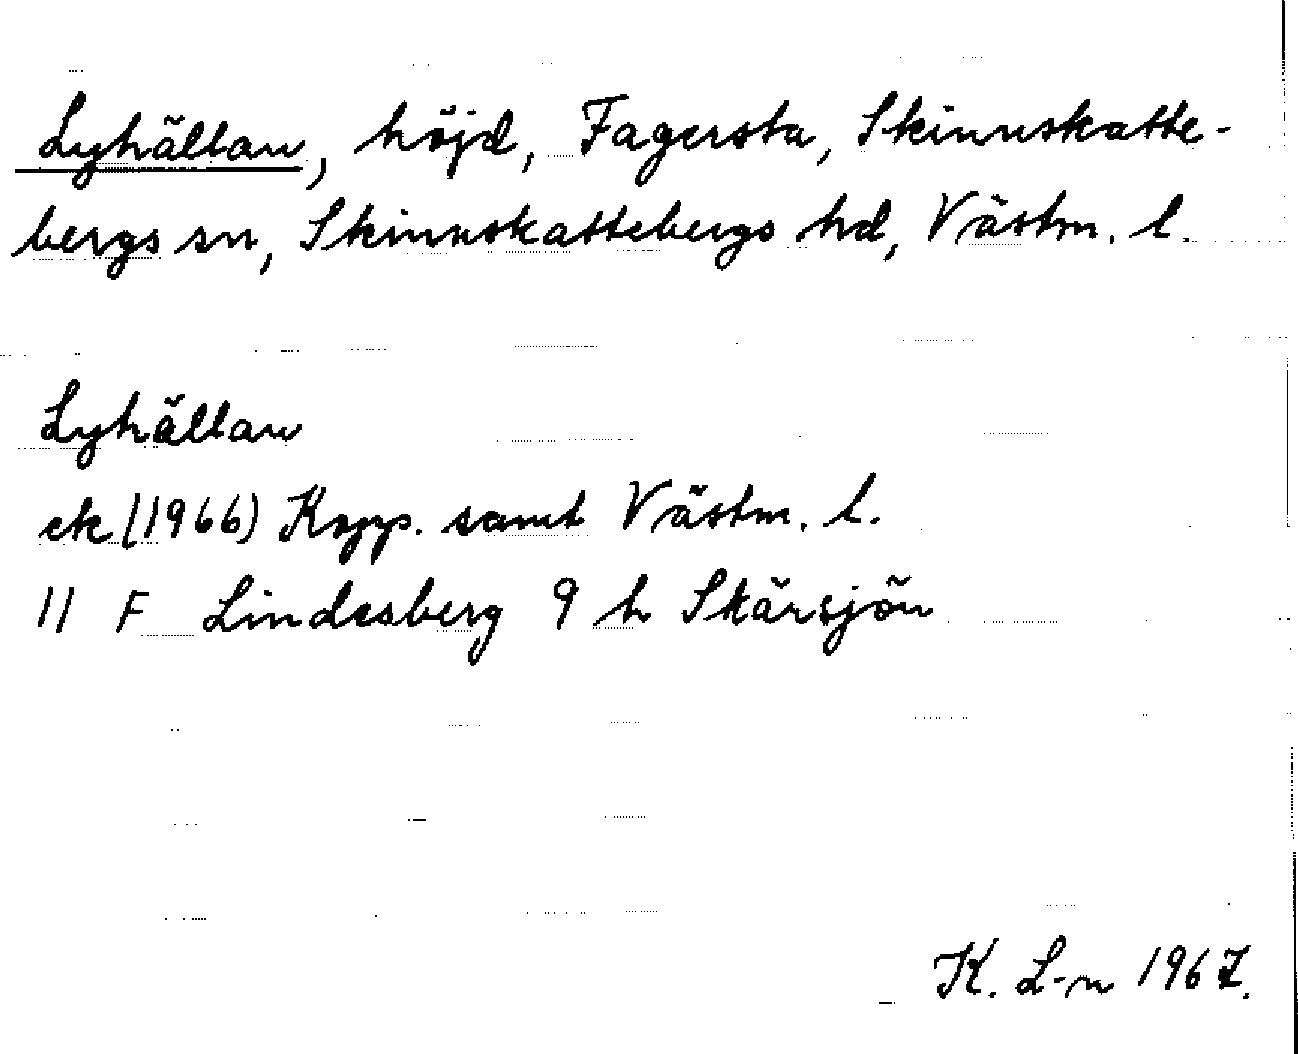 Lyhällan, höjd, Fagersta, Skinnskatte-
bergs sn, Skinnskattebergs hd, Västm. l.
Lyhällan
ek (1966) Kopp. samt Västm. l.
11 F Lindesberg 9 h Skärsjön
K. L-n 1967.